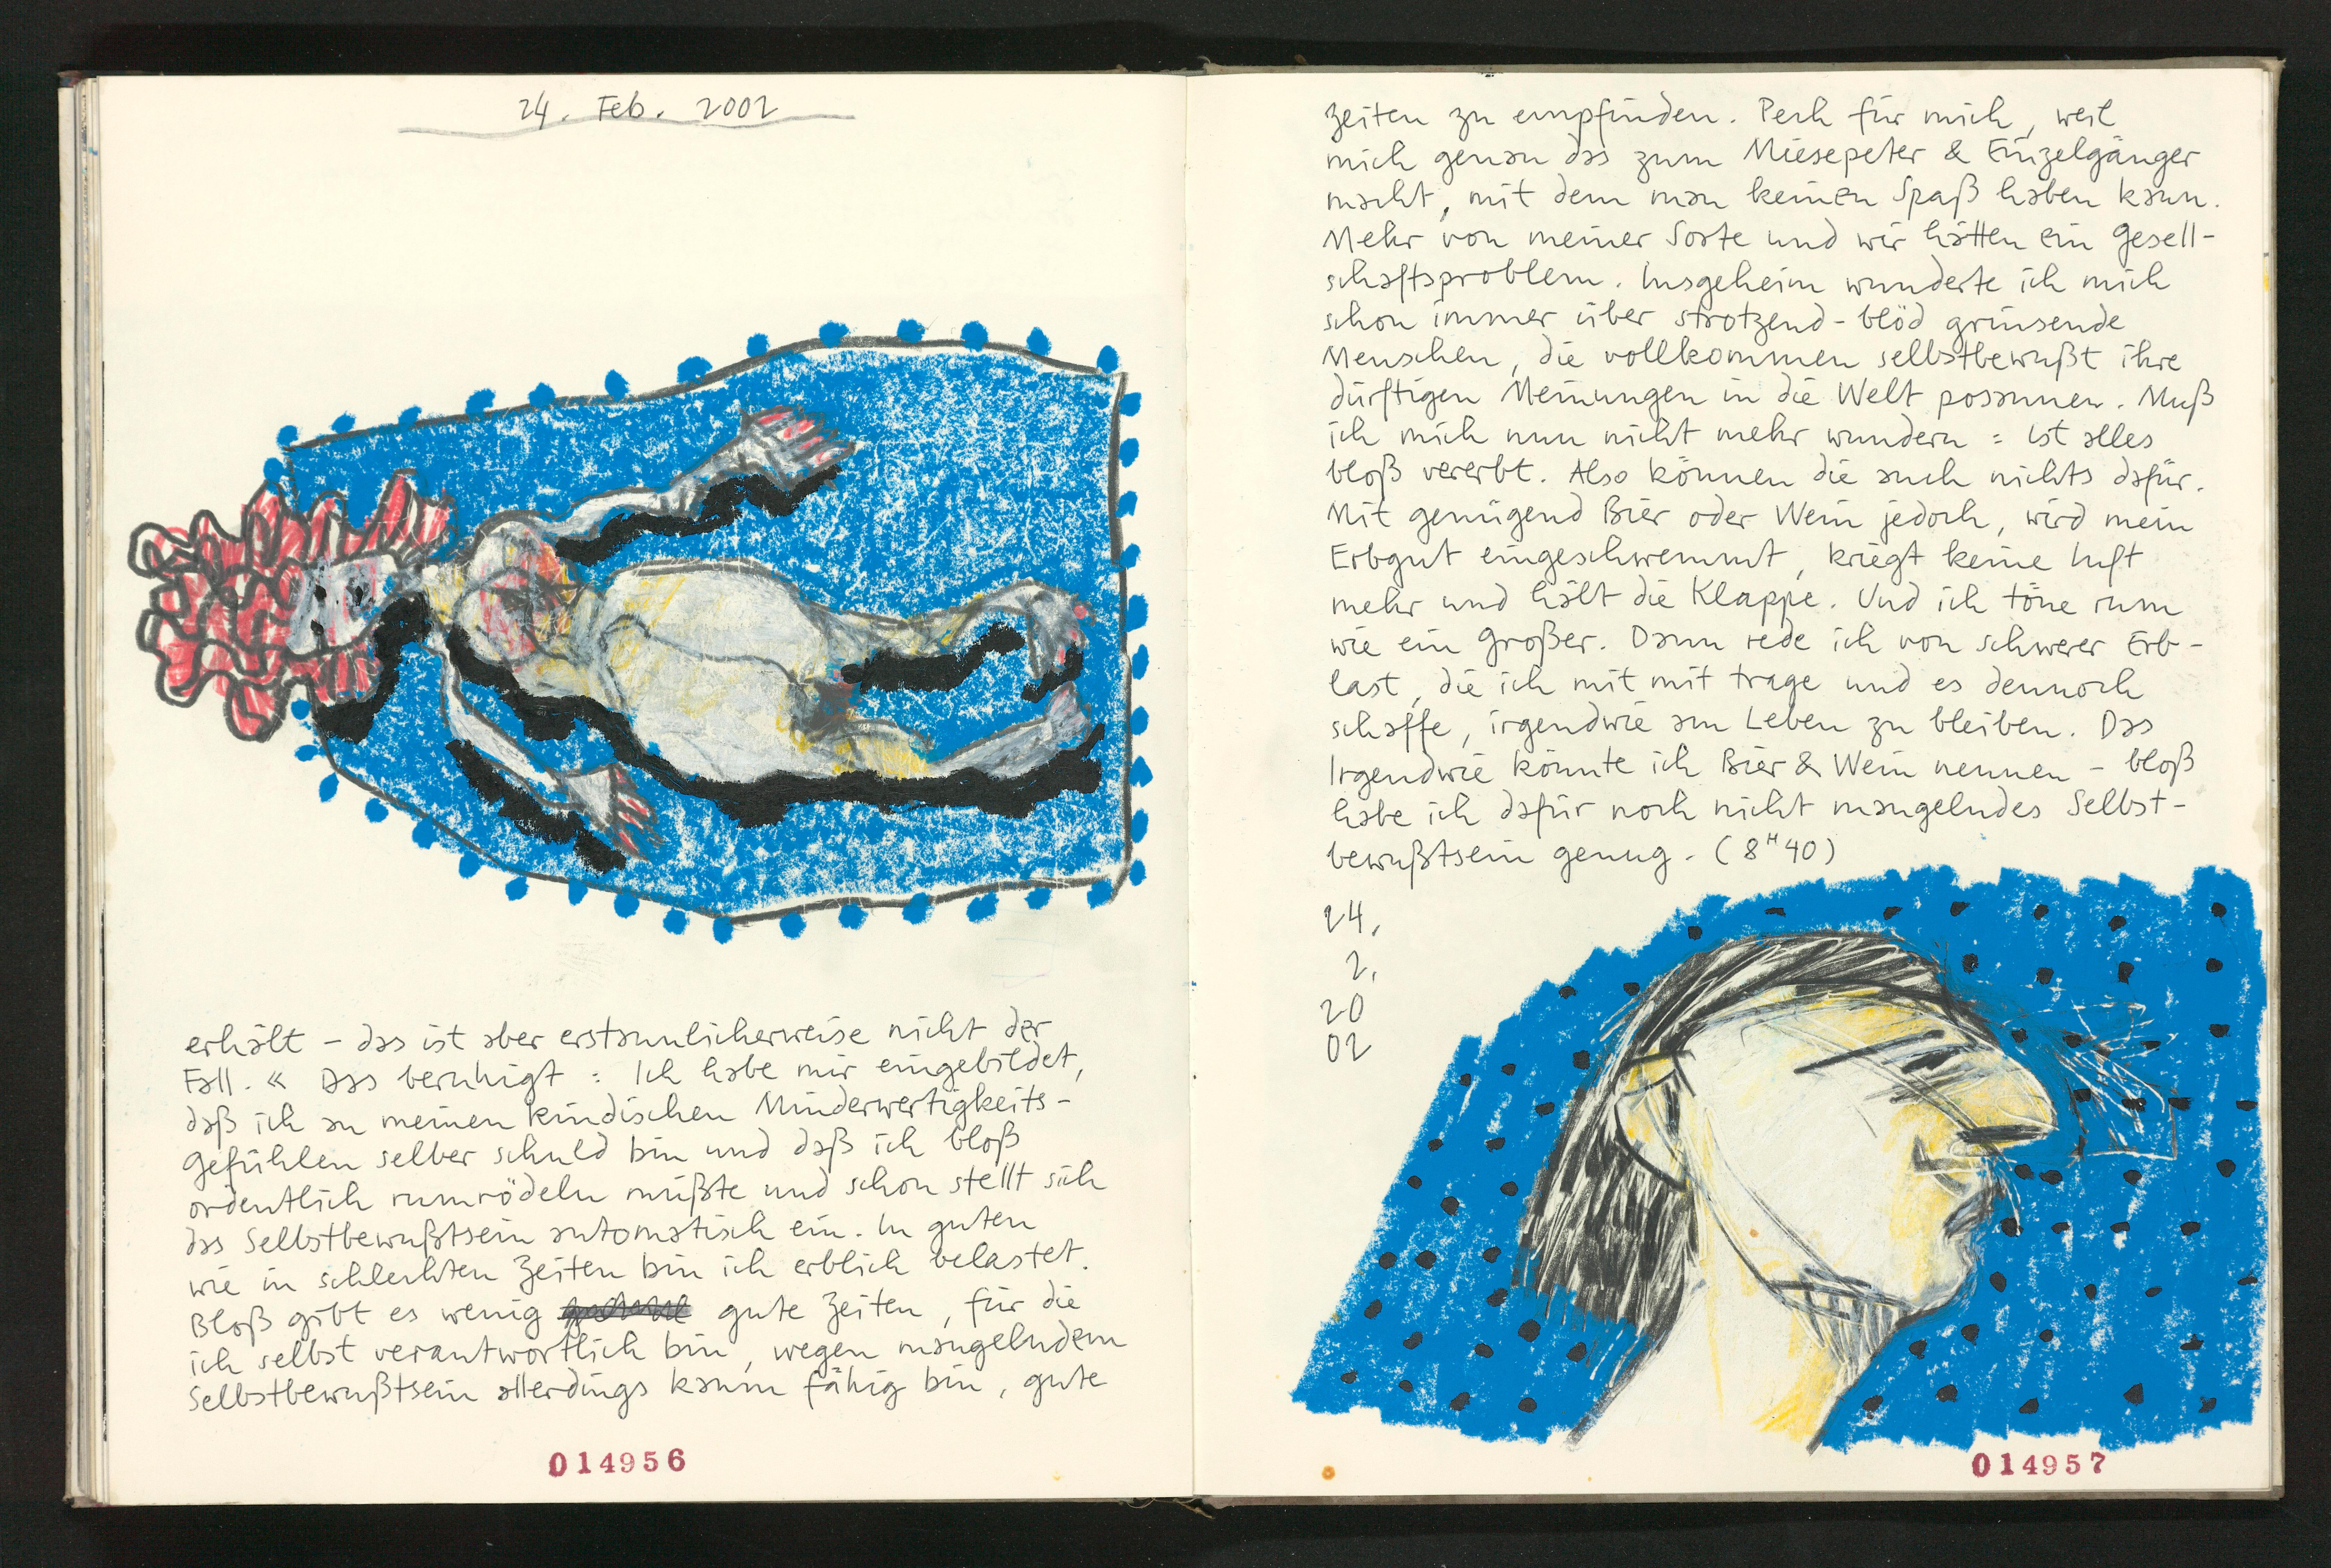 24. Feb. 2002
erhält – das ist aber erstaunlicherweise nicht der
Fall. « Das beruhigt : Ich habe mir eingebildet,
daß ich an meinen kindischen Minderwertigkeits-
gefühlen selber schuld bin und daß ich bloß
ordentlich rumrödeln müßte und schon stellt sich
das Selbstbewußtsein automatisch ein. In guten
wie in schlechten Zeiten bin ich erblich belastet.
Bloß gibt es wenig gute Zeiten, für die
ich selbst verantwortlich bin, wegen mangelndem
Selbstbewußtsein allerdings kaum fähig bin, gute
014956
Zeiten zu empfinden. Pech für mich, weil
mich genau das zum Miesepeter & Einzelgänger
macht, mit dem man keinen Spaß haben kann.
Mehr von meiner Sorte und wir hätten ein Gesell-
schaftsproblem. Insgeheim wunderte ich mich
schon immer über strotzend-blöd grinsende
Menschen, die vollkommen selbstbewußt ihre
dürftigen Meinungen in die Welt posaunen. Muß
ich mich nun nicht mehr wundern : ist alles
bloß vererbt. Also können die auch nichts dafür.
Mit genügend Bier oder Wein jedoch, wird mein
Erbgut eingeschwemmt, kriegt keine Luft
mehr und hält die Klappe. Und ich töne rum
wie ein Großer. Dann rede ich von schwerer Erb-
last, die ich mit mit trage und es dennoch
schaffe, irgendwie am Leben zu bleiben. Das
Irgendwie könnte ich Bier & Wein nennen – bloß
habe ich dafür noch nicht mangelndes Selbst-
bewußtsein genug. (8H40)
24.
2.
20
02
014957